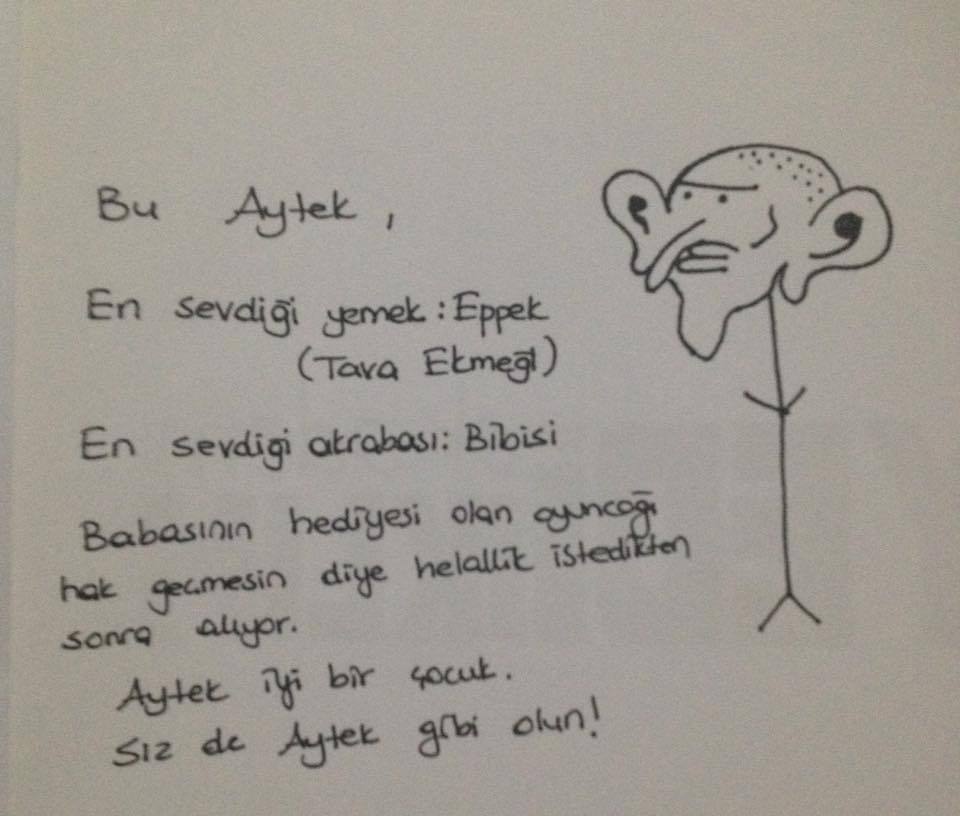 Bu Aytek,
En sevdiği yemek : Eppek
(Tava Ekmeği)
En sevdigi akrabası: Bibisi
Babasının hediyesi olan oyuncağı
hak geçmesin diye helallik istedikten
sonra alıyor.
Aytek iyi bir çocuk.
Siz de Aytek gibi olun!